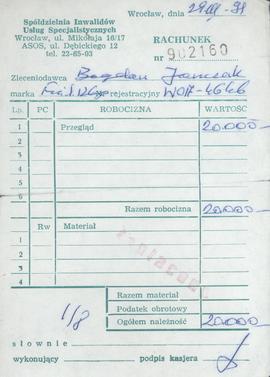 Wrocław, dnia
Spółdzielnia Inwalidów
Usług Specjalistycznych
Wrocław, ul. Mikołaja 16/17
ASOS, ul. Dębickiego 12
tel. 22-65-03
RACHUNEK
nr 902160
Zleceniodawca Bogdan Janczak
marka rejestracyjny
Lp. PC ROBOCIZNA WARTOŚĆ
1 Przegląd 20.000
2
3
4
5
6
Razem robocizna 20.000
Rw Materiał
1
2
3
4
Razem materiał
Podatek obrotowy
1/8 Ogółem należność 20.000
słownie
wykonujący podpis kasjera